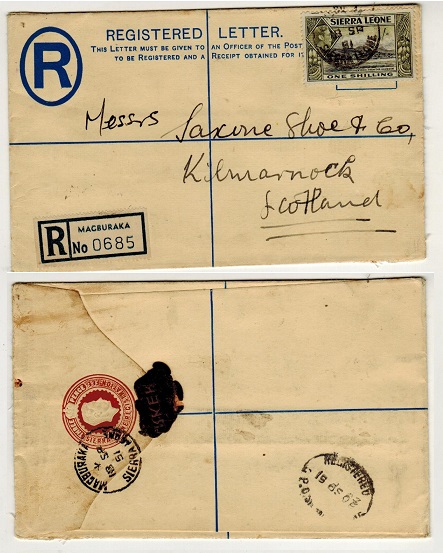 REGISTERED LETTER.
THIS LETTER MUST BE GIVEN TO AN OFFICER OF THE POST
TO BE REGISTERED AND A RECEIPT OBTAINED FOR IT
R
SIERRA LEONE
ONE SHILLING
Messrs Saxone Shoe & Co,
Kilmarnock
Scotland
R MAGBURAKA
No 0685
MAGBURAKA
SIERRA LEONE
18 SP
51
REGISTERED
20 SP 51